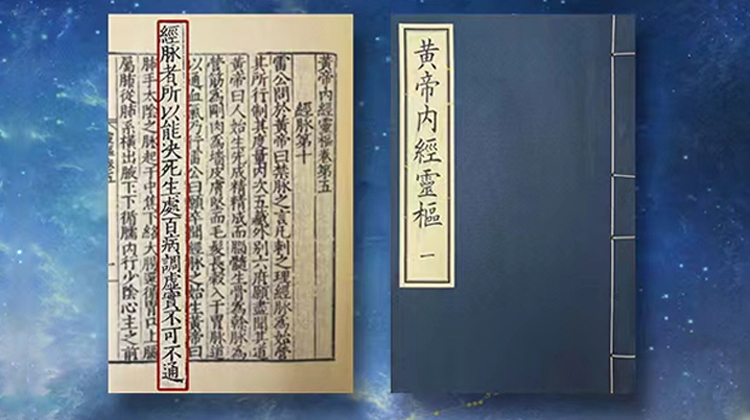 黃帝內經靈樞卷第五
經脉第十
雷公問於黃帝曰禁脉之言凡刺之理經脉為始營
其所行制其度量內次五藏外别六府願盡聞其道
黃帝曰人始生先成精精成而腦髓生骨為幹脉為
營筋為剛肉為墻皮膚堅而毛髮長穀入于胃脉道
以通血氣乃行雷公曰願卒聞經脉之始生黃帝曰
經脉者所以能决死生處百病調虛實不可不通
肺手太陰之脉起于中焦下絡大腸還循胃口上膈
屬肺從肺系橫出腋下下循臑內行少陰心主之前
黃帝內經靈樞 一